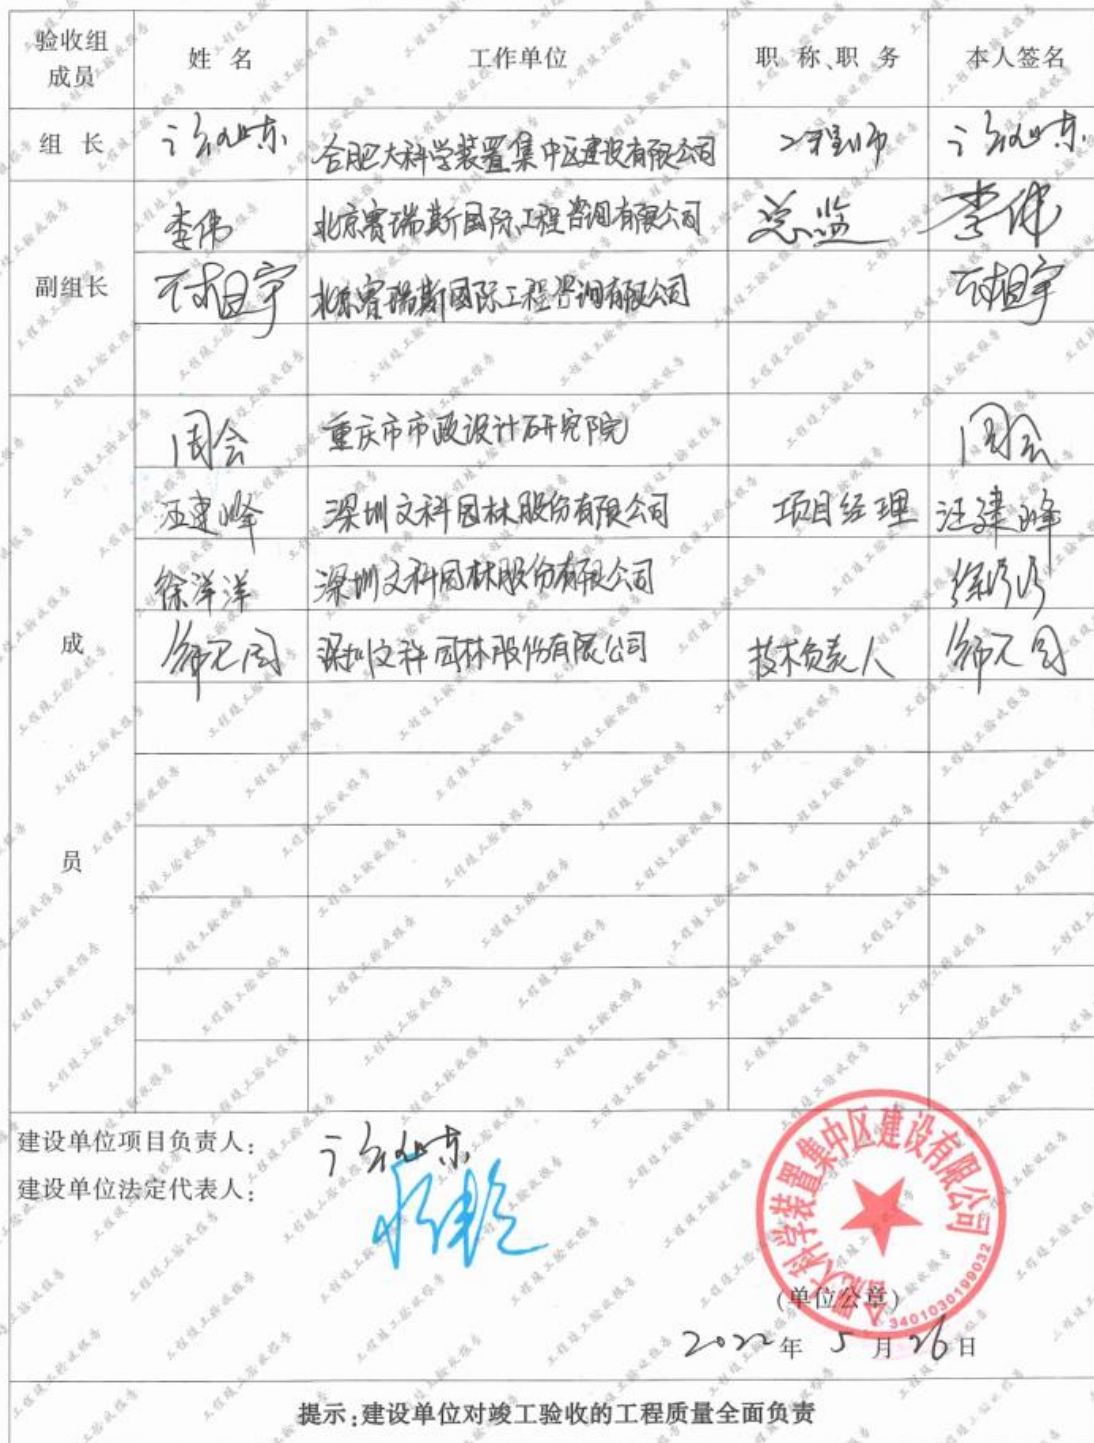 验收组成员 姓名 工作单位 职称、职务 本人签名
组长 合肥大科学装置集中区建设有限公司 工程师
副组长 李伟 北京赛瑞斯国际工程咨询有限公司 总监 李伟
北京赛瑞斯国际工程咨询有限公司
成员 周会 重庆市市政设计研究院 周会
汪建峰 深圳文科园林股份有限公司 项目经理 汪建峰
徐洋洋 深圳文科园林股份有限公司
深圳文科园林股份有限公司 技术负责人
建设单位项目负责人：
建设单位法定代表人：
合肥大科学装置集中区建设有限公司
3401030199032
(单位公章)
2022年5月26日
提示：建设单位对竣工验收的工程质量全面负责
工程竣工验收报告